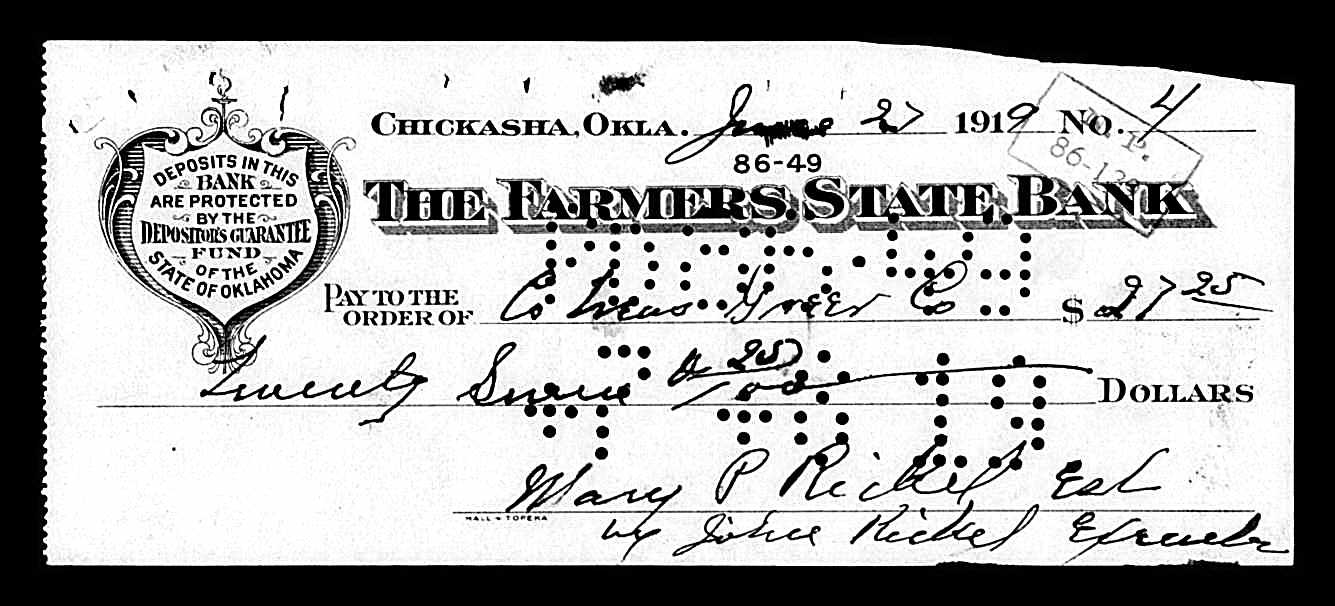 CHICKASHA, OKLA. June 27 1919 No. 4
86-49
THE FARMERS STATE BANK
DEPOSITS IN THIS
BANK
ARE PROTECTED
BY THE
DEPOSITOR'S GUARANTEE
FUND
OF THE
STATE OF OKLAHOMA
PAY TO THE
ORDER OF Co Treas Greer Co $ 27 25
Twenty Seven & 25/100 DOLLARS
Mary P Rickel Est
HALL - TOPEKA
by John Rickel